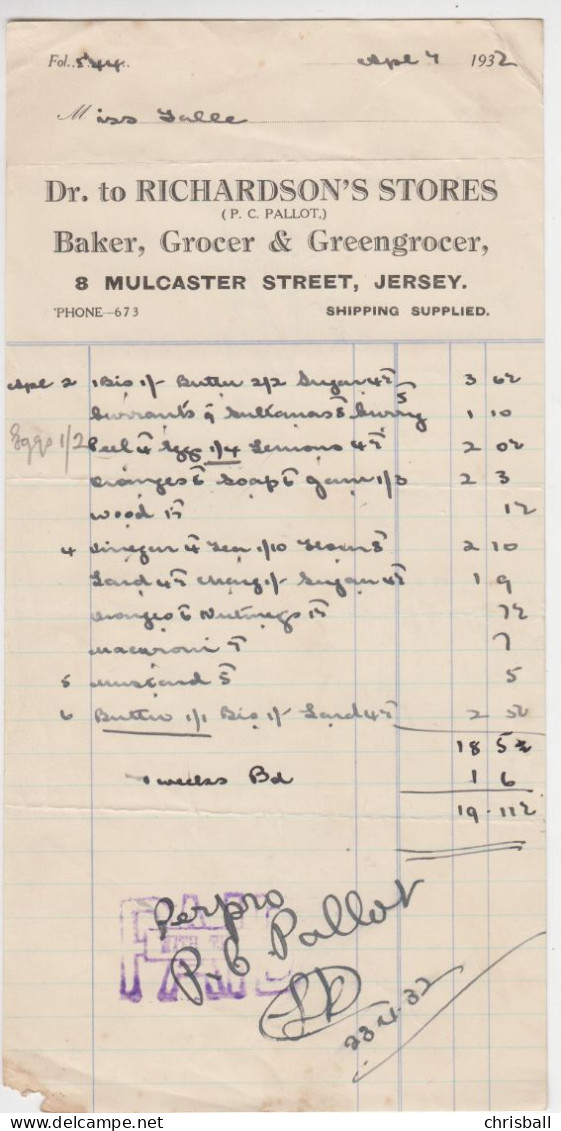 Fol. 544. Apl 7 1932
Miss Falle
Dr. to RICHARDSON'S STORES
(P. C. PALLOT,)
Baker, Grocer & Greengrocer,
8 MULCASTER STREET, JERSEY.
'PHONE—673 SHIPPING SUPPLIED.
Apl 2 1 Bis 1/- Butter 2/2 Sugar 4½ 3 6½
Currants 9 Sultanas 8 Curry 5 1 10
Eggs 1/2 Peel 4 Egg 1/4 Lemons 4½ 2 0½
Oranges 6 Soap 6 Jam 1/3 2 3
Wood 1½ 1½
4 Vinegar 4 Tea 1/10 Flour 8 2 10
Lard 4½ Marg 1/- Sugar 4½ 1 9
Oranges 6 Nutmegs 1½ 7½
Macaroni 7 7
5 Mustard 5 5
6 Butter 1/1 Bis 1/- Lard 4½ 2 5½
18 5½
1 weeks Bd 1 6
19 - 11½
Perpro
P. C. Pallot
PAID
WITH
23.4.32
chrisball